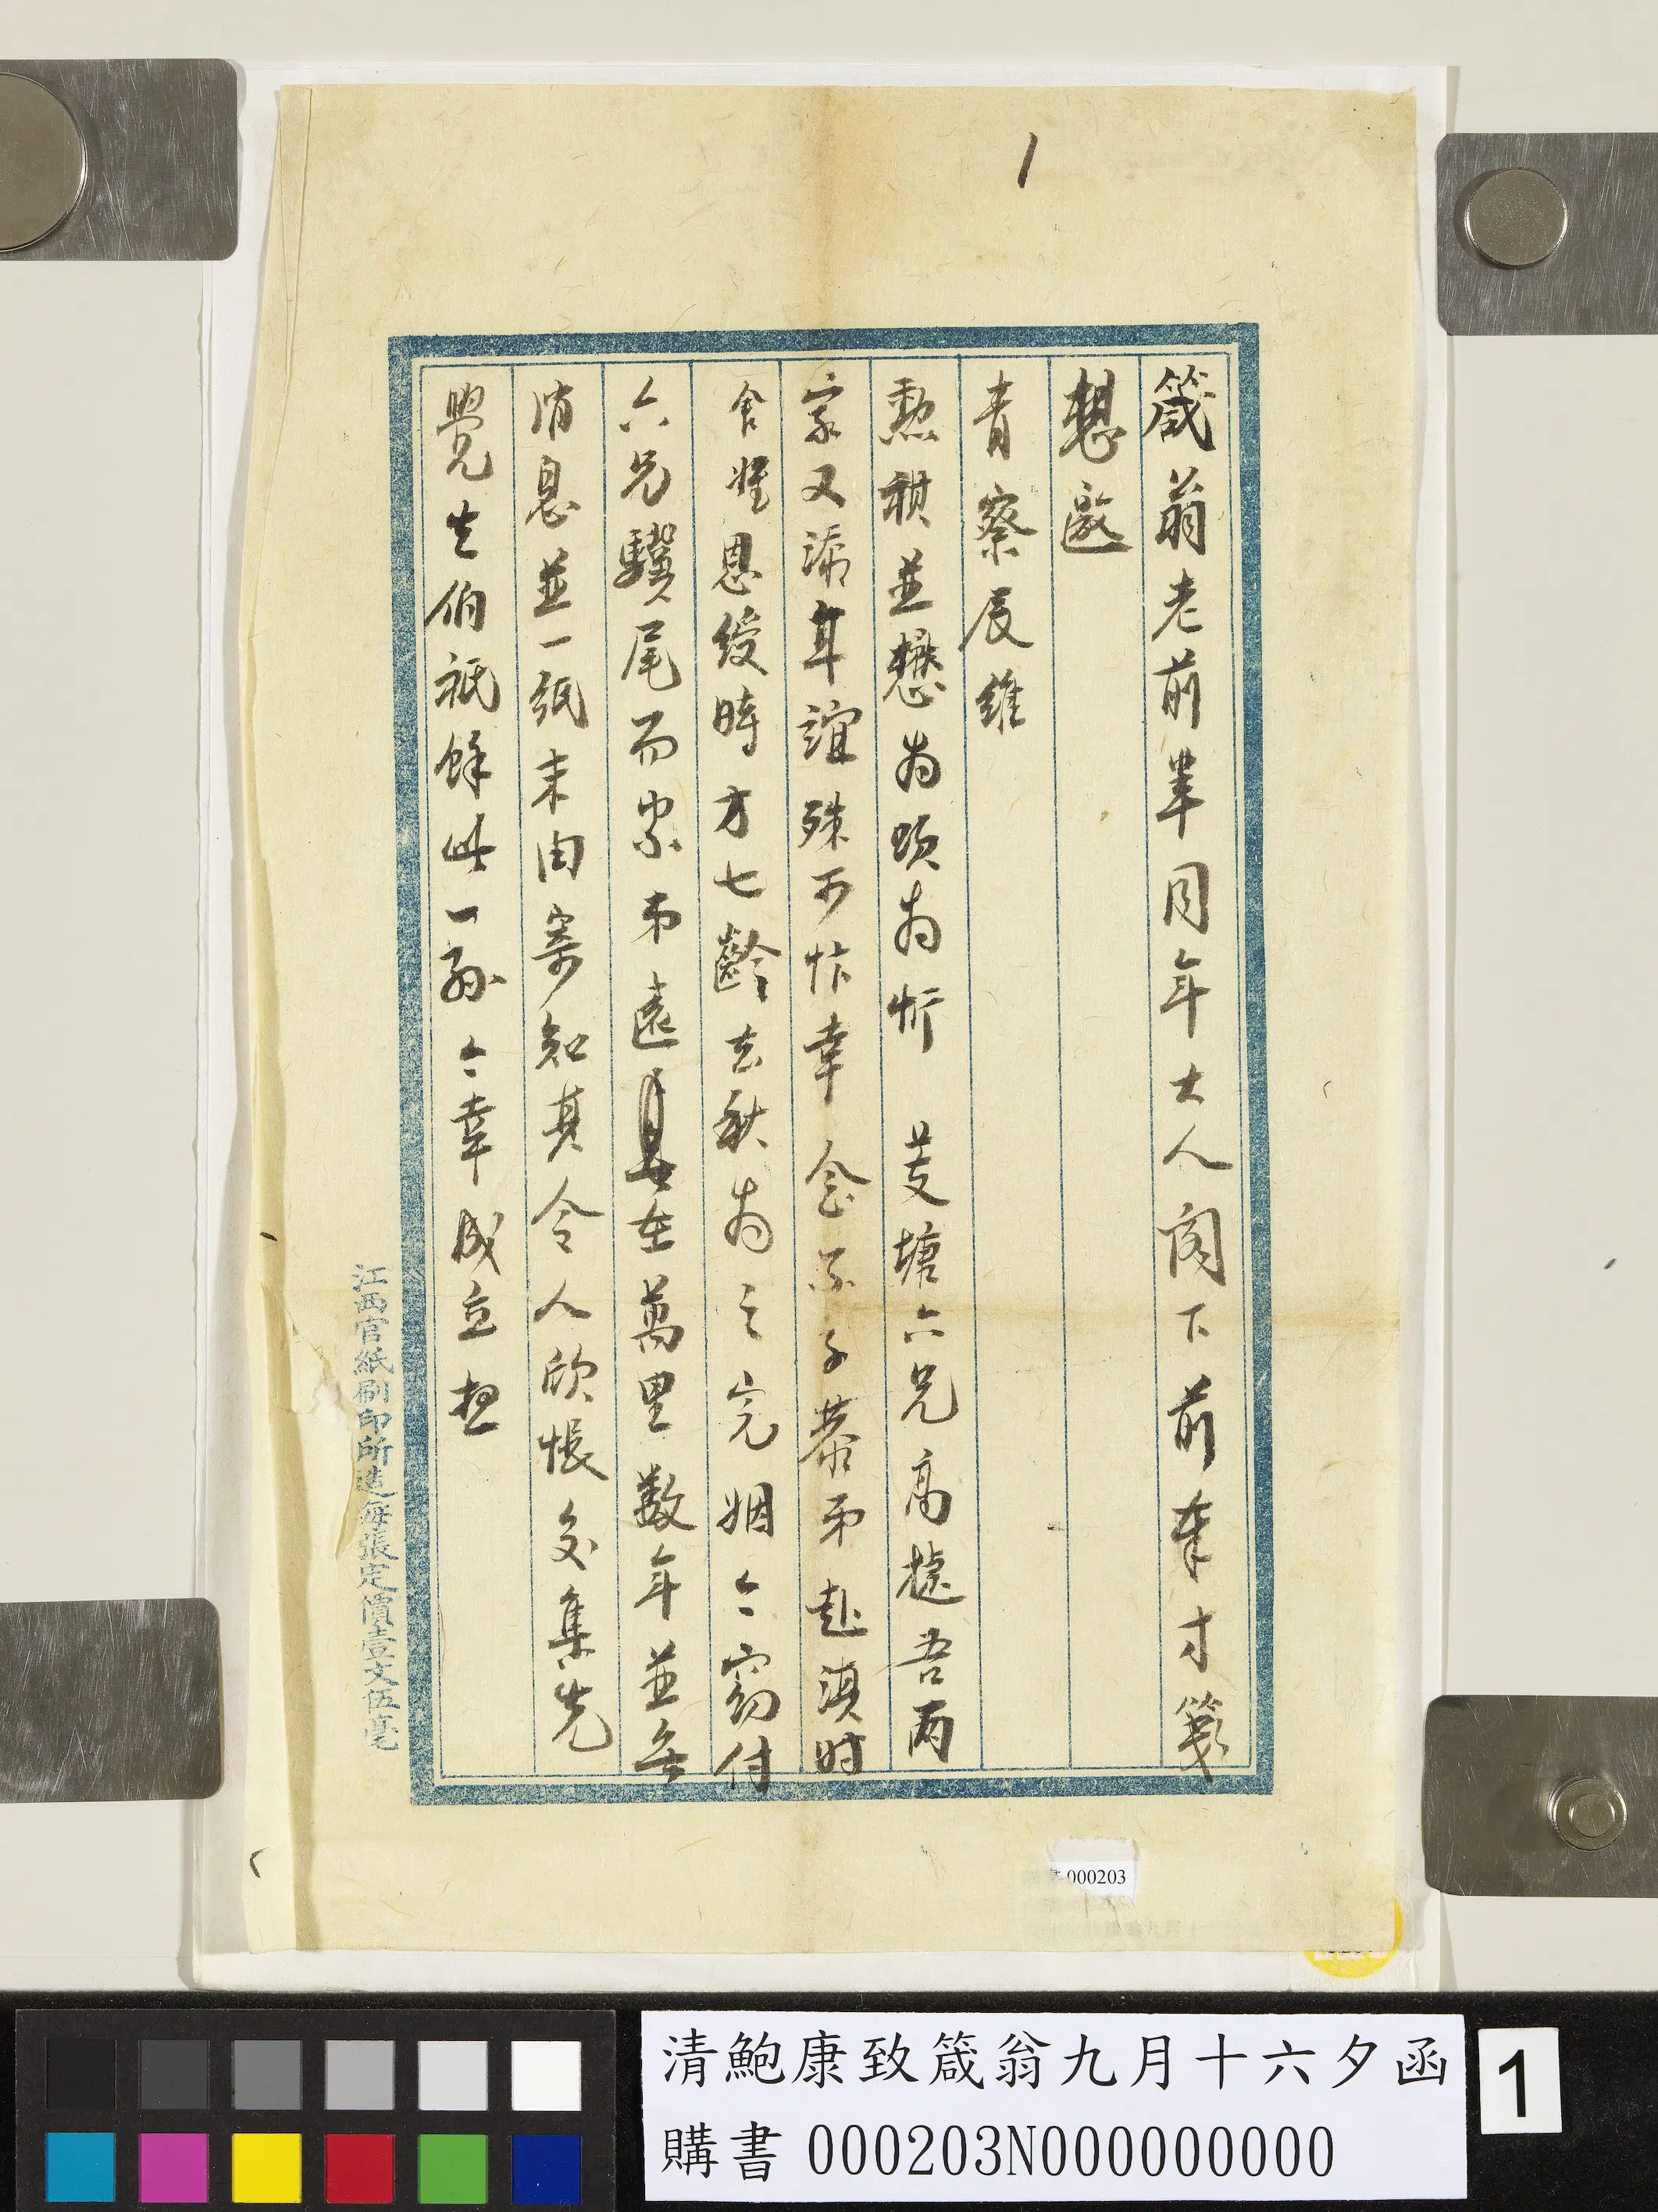 1
箴翁老前輩同年大人閣下前奉寸箋
想邀
青察辰維
勲祺並懋為頌為忻 芰塘六兄高捷吾兩
家又添年誼殊可忭幸念子恭弟赴滇时
舍姪恩綬時方七齡去秋為之完姻今竊付
六兄驥尾而家弟遠在萬里數年並無
消息並一紙未由寄知其令人欣悵交集先
覺生伯祇餘此一孫今幸成立想
江西官紙刷印所造每張定價壹文伍毫
000203
清鮑康致箴翁九月十六夕函
購書 000203N000000000
1